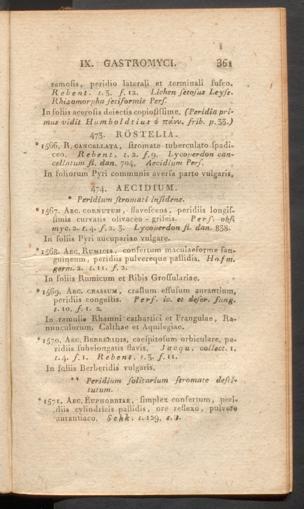 IX. GASTROMYCI. 361
ramosis, peridio laterali et terminali fusco.
Rebent. t. 3. f. 12. Lichen setosus Leyss.
Rhizomorpha setiformis Pers.
In foliis acerosis deiectis copiosissime. (Peridia pri-
mus vidit Humboldtius ὁ πάνυ. frib. p. 33.)
473. RÖSTELIA.
*1566. R. CANCELLATA, stromate tuberculato spadi-
ceo. Rebent. t. 2. f. 9. Lycoperdon can-
cellatum fl. dan. 704. Aecidium Pers.
In foliorum Pyri communis aversa parte vulgaris.
474. AECIDIUM.
* Peridium stromati insidens.
*1567. AEC. CORNUTUM, flavescens, peridiis longis-
simis curvatis olivaceo-griseis. Pers. obs.
myc. 2. t. 4. f. 2. 3. Lycoperdon fl. dan. 838.
In foliis Pyri aucupariae vulgare.
*1568. AEC. RUMICIS, confertum maculaeforme san-
guineum, peridiis pulvereque pallidis. Hofm.
germ. 2. t. 11. f. 2.
In foliis Rumicum et Ribis Grossulariae.
*1569. AEC. CRASSUM, crassum effusum aurantium,
peridiis congestis. Pers. ic. et descr. fung.
t. 10. f. 1. 2.
In ramulis Rhamni cathartici et Frangulae, Ra-
nunculorum, Calthae et Aquilegiae.
*1570. AEC. BERBERIDIS, caespitosum orbiculare, pe-
ridiis subelongatis flavis. Jacqu. collect. 1.
t. 4. f. 1. Rebent. t. 3. f. 11.
In foliis Berberidis vulgaris.
** Peridium solitarium stromate desti-
tutum.
*1571. AEC. EUPHORBIAE, simplex confertum, peri-
diis cylindricis pallidis, ore reflexo, pulvere
aurantiaco. Schk. t. 129. s. 1.